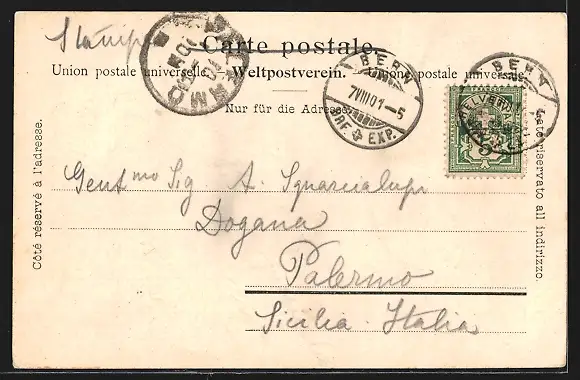 Stampe
Carte postale.
Union postale universelle. — Weltpostverein. — Unione postale universale.
Nur für die Adresse.
Côté réservé à l'adresse.
Lato riservato all indirizzo.
PALERMO
BERN
7VIII01-5
BRF EXP.
BERN
HELVETIA
5
Gentmo Sig A. Squarcialupi
Dogana
Palermo
Sicilia-Italia